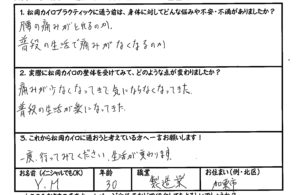 1. 松岡カイロプラクティックに通う前は、身体に対してどんな悩みや不安・不満がありましたか?
腰の痛みがとれるのか
普段の生活で痛みがなくなるのか
2. 実際に松岡カイロの整体を受けてみて、どのような点が変わりましたか?
痛みが少なくなってきて気にならなくなってきた
普段の生活が楽になってきた
3. これから松岡カイロに通おうと考えている方へ一言お願いします!
一度、行ってみてください。生活が変わります。
お名前(イニシャルでもOK) 年齢 職業 お住まい(例・北区)
Y.M 30 製造業 加東市